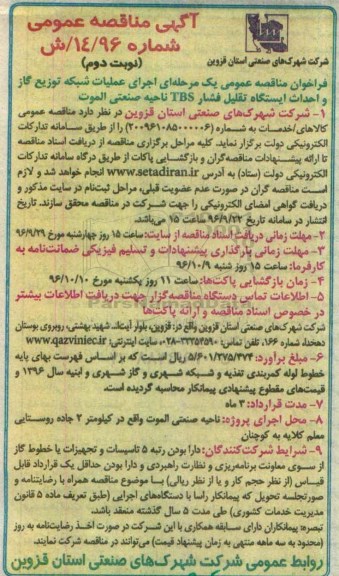 آگهی مناقصه عمومی
شماره ۱۴/۹۶/ش
(نوبت دوم)
شرکت شهرک‌های صنعتی استان قزوین
فراخوان مناقصه عمومی یک مرحله‌ای اجرای عملیات شبکه توزیع گاز
و احداث ایستگاه تقلیل فشار TBS ناحیه صنعتی الموت
۱- شرکت شهرک‌های صنعتی استان قزوین در نظر دارد مناقصه عمومی
کالاهای/خدمات به شماره (۲۰۰۹۶۱۰۸۵۰۰۰۰۰۶) را از طریق سامانه تدارکات
الکترونیکی دولت برگزار نماید. کلیه مراحل برگزاری مناقصه از دریافت اسناد مناقصه
تا ارائه پیشنهادات مناقصه‌گران و بازگشایی پاکات از طریق درگاه سامانه تدارکات
الکترونیکی دولت (ستاد) به آدرس www.setadiran.ir انجام خواهد شد و لازم
است مناقصه گران در صورت عدم عضویت قبلی، مراحل ثبت‌نام در سایت مذکور و
دریافت گواهی امضای الکترونیکی را جهت شرکت در مناقصه محقق سازند. تاریخ
انتشار در سامانه تاریخ ۹۶/۹/۲۲ ساعت ۱۵ می‌باشد.
۲- مهلت زمانی دریافت اسناد مناقصه از سایت: ساعت ۱۵ روز چهارشنبه مورخ ۹۶/۹/۲۹
۳- مهلت زمانی بارگذاری پیشنهادات و تسلیم فیزیکی ضمانت‌نامه به
کارفرما: ساعت ۱۵ روز شنبه ۹۶/۱۰/۹
۴- زمان بازگشایی پاکت‌ها: ساعت ۱۱ روز یکشنبه مورخ ۹۶/۱۰/۱۰
۵- اطلاعات تماس دستگاه مناقصه‌گزار جهت دریافت اطلاعات بیشتر
در خصوص اسناد مناقصه و ارائه پاکت‌ها
شرکت شهرک‌های صنعتی استان قزوین واقع در: قزوین، بلوار آیت‌ا... شهید بهشتی، روبروی بوستان
دهخدا، شماره ۱۶۶، تلفن تماس: ۳۳۳۵۲۵۹۰-۰۲۸، سایت اینترنتی: www.qazviniec.ir
۶- مبلغ برآورد: ۵/۶۰۱/۲۷۵/۳۷۴ ریال است که بر اساس فهرست بهای پایه
خطوط لوله کمربندی تغذیه و شبکه شهری و گاز شهری و ابنیه سال ۱۳۹۶ و
قیمت‌های مقطوع پیشنهادی پیمانکار محاسبه گردیده است.
۷- مدت قرارداد: ۳ ماه
۸- محل اجرای پروژه: ناحیه صنعتی الموت واقع در کیلومتر ۲ جاده روستایی
معلم کلایه به کوچنان
۹- شرایط شرکت‌کنندگان: دارا بودن رتبه ۵ تاسیسات و تجهیزات یا خطوط گاز
از سوی معاونت برنامه‌ریزی و نظارت راهبردی و دارا بودن حداقل یک قرارداد قابل
قیاس (از نظر حجم کار و یا از نظر ریالی) با موضوع مناقصه همراه با رضایتنامه و
صورتجلسه تحویل که پیمانکار راسا با دستگاه‌های اجرایی (طبق تعریف ماده ۵ قانون
مدیریت خدمات کشوری) طی مدت ۵ سال گذشته منعقد باشد.
تبصره: پیمانکاران دارای سابقه همکاری با این شرکت در صورت اخذ رضایت‌نامه به روز
(محدود به سه ماهه منتهی به زمان پیشنهاد قیمت) می‌توانند در مناقصه شرکت نمایند.
روابط عمومی شرکت شهرک‌های صنعتی استان قزوین